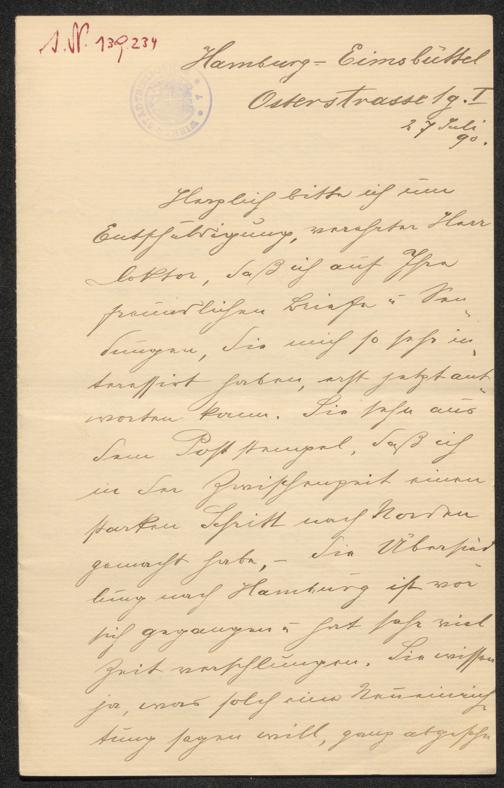 I. N. 139.234
Hamburg-Eimsbüttel
Osterstrasse 1g. I
27 Juli
90.
Herzlich bitte ich um
Entschuldigung, verehrter Herr
Doktor, daß ich auf Ihre
freundlichen Briefe u Sen-
dungen, die mich so sehr in-
teressirt haben, erst jetzt ant-
worten kann. Sie sehn aus
dem Poststempel, daß ich
in der Zwischenzeit einen
starken Schritt nach Norden
gemacht habe, – die Übersied
lung nach Hamburg ist vor
sich gegangen u hat sehr viel
Zeit verschlungen. Sie wissen
ja, was solch eine Neueinrich-
tung sagen will, ganz abgesehn